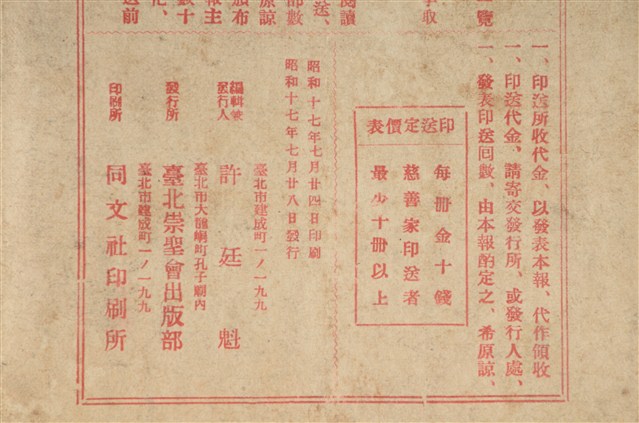 一覽
爭取
閱讀
送、
部數
原諒
頒布
報主
數十
化、
送前
一、印送所收代金、以發表本報、代作領收
一、印送代金、請寄交發行所、或發行人處、
一、發表印送回數、由本報酌定之、希原諒、
印送定價表
每冊金十錢
慈善家印送者
最少十冊以上
昭和十七年七月廿四日印刷
昭和十七年七月廿八日發行
臺北市建成町一ノ一九九
編輯兼
發行人
許廷魁
臺北市大龍峒町孔子廟內
發行所
臺北崇聖會出版部
臺北市建成町一ノ一九九
印刷所
同文社印刷所